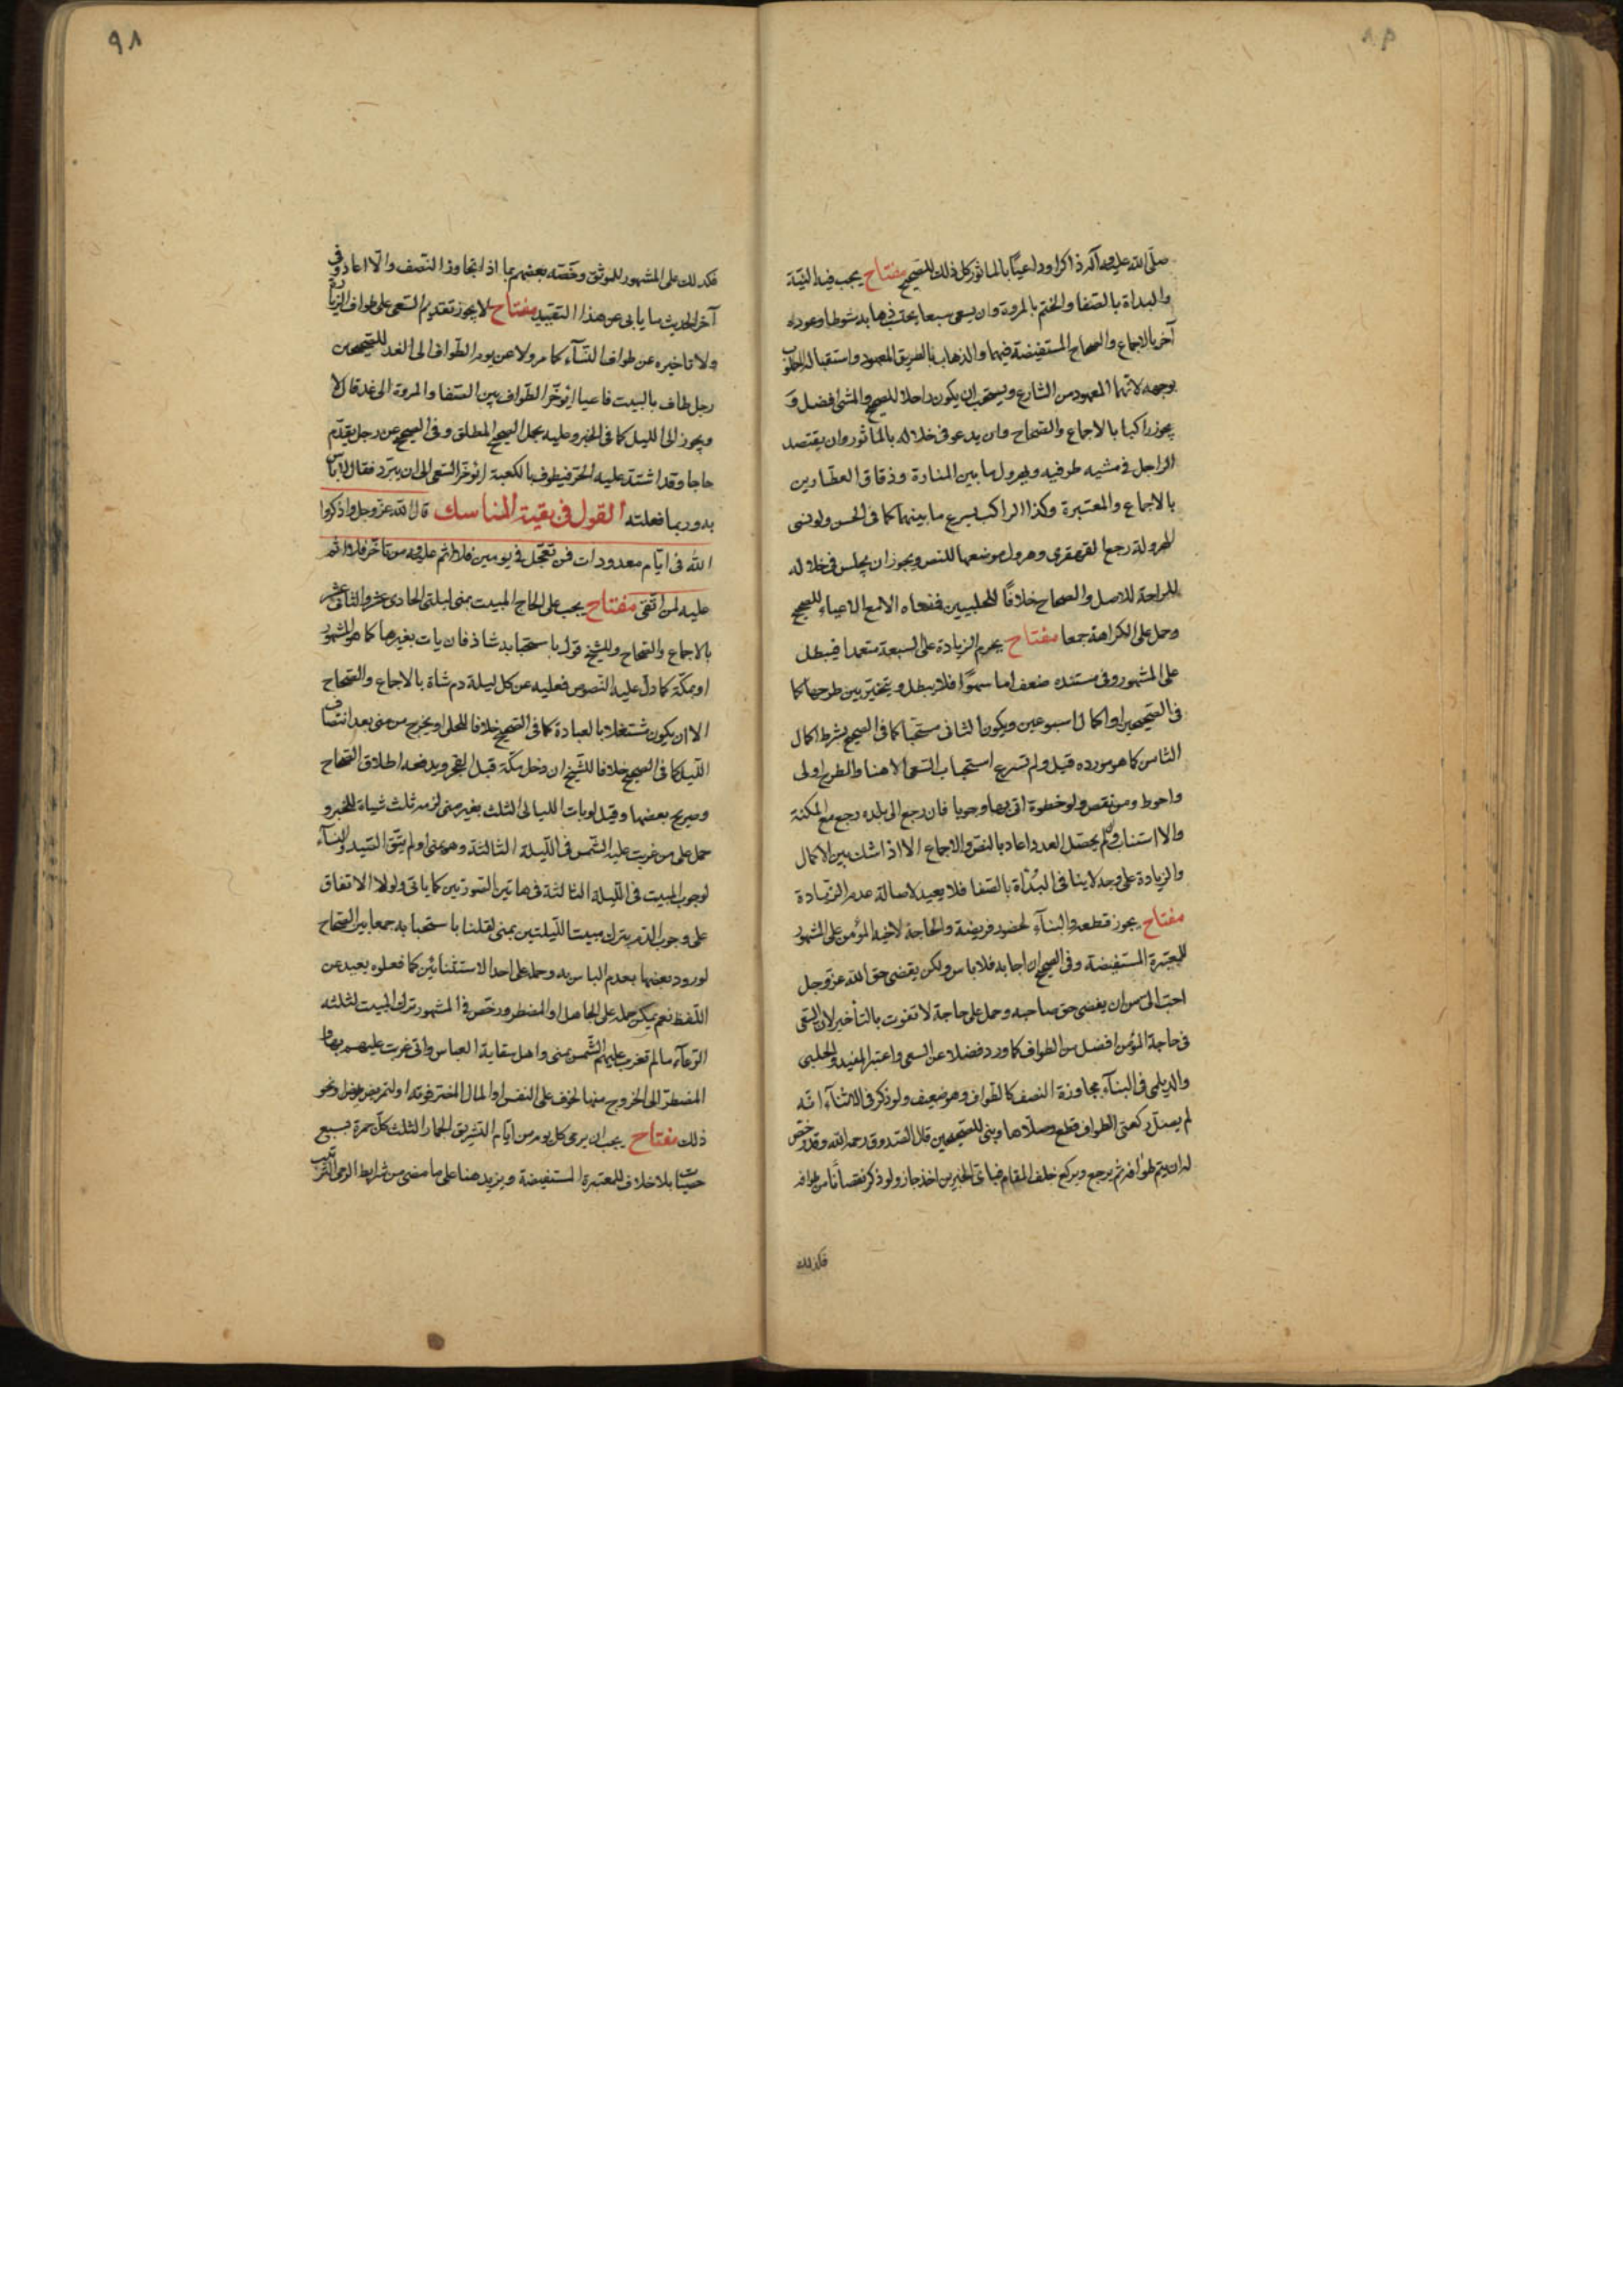 صلّى الله عليه وآله ذاكرا وداعيًا بالماثور كل ذلك للصحيح مفتاح يجب فيه النيّة
والبداة بالصّفا والختم بالمروة وان يسعى سبعا يحتسب ذهابه شوطا وعوده
آخر بالاجماع والصحاح المستفيضة فيهما والذهاب بالطريق المعهود واستقبال المطلوب
بوجهه لانهما المعهود من الشارع ويستحب ان يكون راجلا للصحيح والمشى افضل و
يجوز راكبا بالاجماع والصّحاح وان يدعو فى خلاله بالماثور وان يقتصد
الراجل فى مشيه طرفيه ويهرول ما بين المنارة وزقاق العطّارين
بالاجماع والمعتبرة وكذا الراكب يسرع ما بينهما كما فى الحسن ولو نسى
الهرولة رجع القهقرى وهرول موضعها للنص ويجوز ان يجلس فى خلاله
للراحة للاصل والصحاح خلافًا للحلبيين فمنعاه الا مع الاعياء للصحيح
وحمل على الكراهة جمعا مفتاح يحرم الزيادة على السبعة متعمدا فيبطل
على المشهور وفى مستنده ضعف اما سهوًا فلا يبطل ويتخيّر بين طرحها كما
فى الصّحيحين او اكمال اسبوعين ويكون الثانى مستحبّا كما فى الصحيح بشرط اكمال
الثامن كما هو مورده قيل ولم يشرع استحباب السعى الا هنا والطرح اولى
واحوط ومن نقص ولو خطوة اتى بها وجوبا فان رجع الى بلده رجع مع المكنة
والا استناب ولو لم يحصّل العدد اعاد بالنصّ والاجماع الا اذا شك بين الاكمال
والزيادة على وجه لا ينافى البُدأة بالصّفا فلا يعيد لاصالة عدم الزّيادة
مفتاح يجوز قطعه والبنآء لحضور فريضة والحاجة لاخيه المؤمن على المشهور
للمعتبرة المستفيضة وفى الصحيح ان اجابه فلا باس ولكن يقضى حق الله عز وجل
احب الىّ من ان يقضى حق صاحبه وحمل على حاجة لا تفوت بالتأخير لان السّعى
فى حاجة المؤمن افضل من الطواف كما ورد فضلا عن السعى واعتبر المفيد والحلبى
والديلمى فى البنآء مجاوزة النصف كالطّواف وهو ضعيف ولو ذكر فى الاثنآء انّه
لم يصلّ ركعتى الطواف قطع وصلّاها وبنى للصّحيحين قال الصّدوق رحمه الله وقد رخّص
له ان يتم طوافه ثم يرجع ويركع خلف المقام فباىّ الخبرين اخذ جاز ولو ذكر نقصانًا من طوافه
فكذلك
٩٨
فكذلك على المشهور للموثق وخصّه بعضهم بما اذا تجاوز النّصف والّا اعاد وفى
آخر الحديث ما يابى عن هذا التقييد مفتاح لا يجوز تقديم السّعى على طواف الزيارة
ولا تاخيره عن طواف النّسآء كما مر ولا عن يوم الطّواف الى الغد للصّحيحين
رجل طاف بالبيت فاعيا ايؤخّر الطّواف بين الصّفا والمروة الى غد قال لا
ويجوز الى الليل كما فى الخبر وعليه يحمل الصحيح المطلق وفى الصحيح عن رجل يقدّم
حاجا وقد اشتد عليه الحّر فيطوف بالكعبة ايؤخّر السّعى الى ان يبرد فقال لا باس
به وربما فعلته القول فى بقية المناسك قال الله عزّ وجل واذكروا
الله فى ايّام معدودات فمن تعجّل فى يومين فلا اثم عليه ومن تأخّر فلا اثم
عليه لمن اتّقى مفتاح يجب على الحاج المبيت بمنى ليلتى الحادى عشر والثانى عشر
بالاجماع والصّحاح وللشيخ قول باستحبابه شاذ فان بات بغيرها كما هو المشهور
او بمكّة كما دلّ عليه النّصوص فعليه عن كل ليلة دم شاة بالاجماع والصّحاح
الا ان يكون مشتغلا بالعبادة كما فى الصّحيح خلافا للحلى او يخرج من منى بعد انتصاف
اللّيل كما فى الصحيح خلافا للشّيخ ان دخل مكّة قبل الفجر ويدفعه اطلاق الصّحاح
وصريح بعضها وقيل لو بات الليالى الثلث بغير منى لزمه ثلث شياة للخبر و
حمل على من غربت عليه الشّمس فى اللّيلة الثالثة وهو بمنى او لم يتّق الصّيد والنسآء
لوجوب المبيت فى اللّيلة الثالثة فى هاتين الصّورتين كما ياتى ولولا الاتفاق
على وجوب الدّم بترك مبيت اللّيلتين بمنى لقلنا باستحبابه جمعا بين الصّحاح
لورود بعضها بعدم الباس به وحمله على احد الاستثنائين كما فعلوه بعيد عن
اللّفظ نعم يمكن حمله على الجاهل او المضطر ورخّص فى المشهور ترك المبيت لثلثة
الرّعآء ما لم تغرب عليهم الشّمس بمنى واهل سقاية العباس وان غربت عليهم بها و
المضطرّ الى الخروج منها لخوف على النفس او المال المضر فوته او لتمريض مريض ونحو
ذلك مفتاح يجب ان يرمى كل يوم من ايّام التشريق الجمار الثلث كلّ جمرة بسبع
حصيات بلا خلاف للمعتبرة المستفيضة ويزيد هنا على ما مضى من شرايط الرمى الترتيب